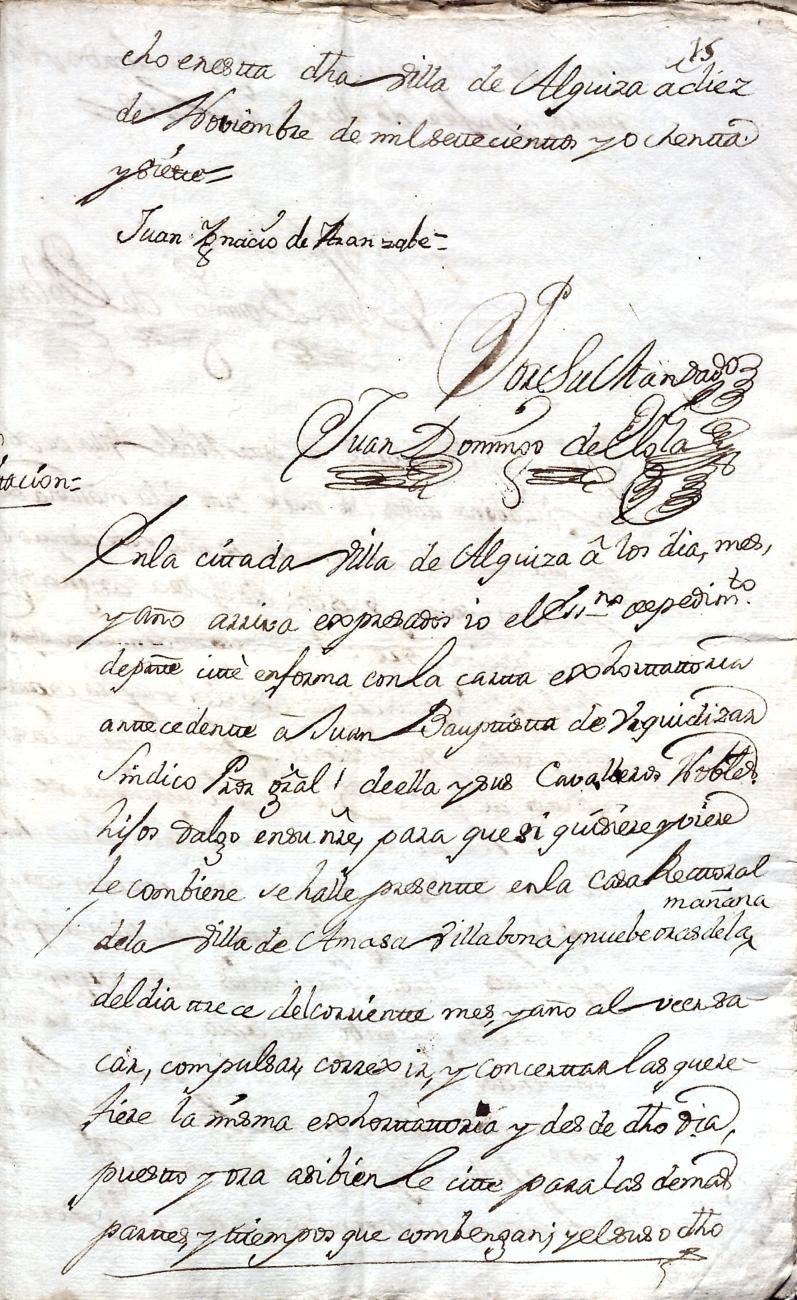 15
cho enestta dha Villa de Alquiza â diez
de Noviembre de mil settecienttos y ochentta
y siette=
Juan Ygnacio de Aranzabe=
Por Su Mandado
Juan Domingo de Elola
tacion=
Enla cittada Villa de Alquiza â los dia, mes,
y año arriva expresados io el Essno apedimto.
deprtte citté enforma conla cartta exhorttattoria
antteçedentte â Juan Bauptistta de Urquidizar
Sindico Pror gral deella y sus Cavalleros Nobles
hijos dalgo ensu nre, para que si quisiere y viere
le combiene se halle presentte enla Casa Rectoral
mañana
dela Villa de Amasa Villabona y nuebe oras dela
deldia ttrece delcorrientte mes, y año al veer sa-
car, compulsar, correxir, y concerttar las quere-
fiere la misma exhorttattoria y desde dho dia,
puestto y ora asibien le citte para las demas
parttes, y ttiempos que combengan; y el suso dho